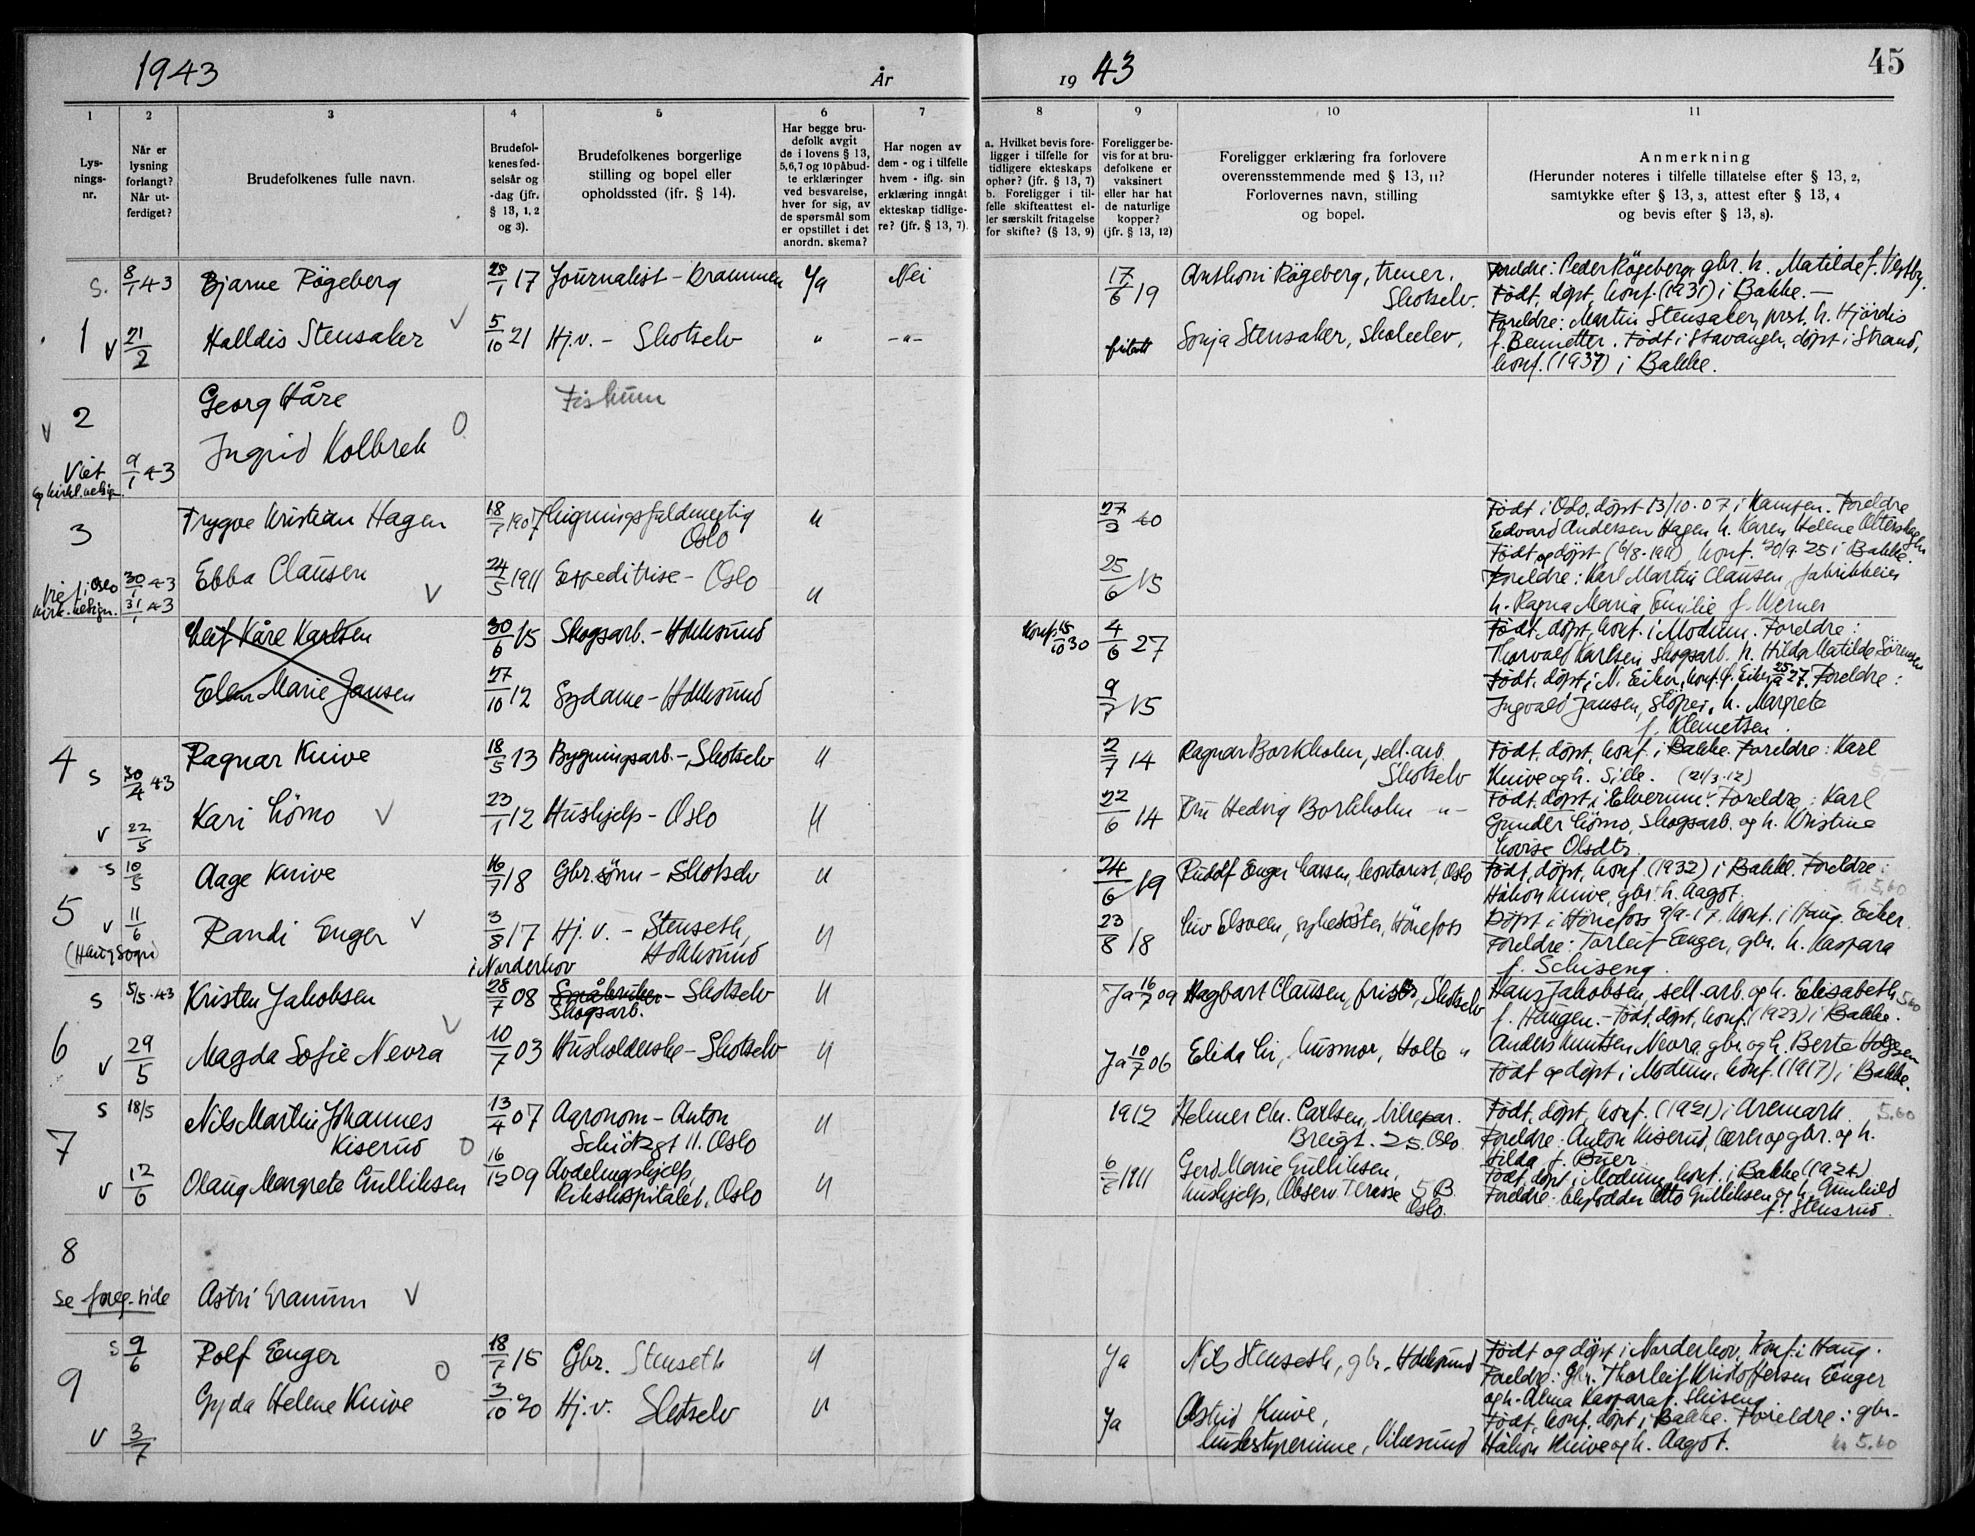 1943
År
19 43
45
1
2
3
4
5
6
7
8
9
10
11
Lys-
nings-
nr.
Når er
lysning
forlangt?
Når ut-
ferdiget?
Brudefolkenes fulle navn.
Brudefol-
kenes fød-
selsår og
-dag (jfr.
§ 13, 1, 2
og 3).
Brudefolkenes borgerlige
stilling og bopel eller
opholdssted (ifr. § 14).
Har begge bru-
defolk avgit
de i lovens § 13,
5,6,7 og 10 påbud-
te erklæringer
ved besvarelse,
hver for sig, av
de spørsmål som
er opstillet i det
anordn. skema?
Har nogen av
dem - og i tilfelle
hvem - iflg. sin
erklæring inngåt
ekteskap tidlige-
re? (jfr. § 13, 7).
a. Hvilket bevis fore-
ligger i tilfelle for
tidligere ekteskaps
ophør? (jfr. § 13, 7)
b. Foreligger i til-
felle skifteattest el-
ler særskilt fritagelse
for skifte? (§ 13, 9)
Foreligger be-
vis for at bru-
defolkene er
vaksinert
eller har hat
de naturlige
kopper?
(jfr. § 13, 12)
Foreligger erklæring fra forlovere
overensstemmende med § 13, 11?
Forlovernes navn, stilling
og bopel.
Anmerkning
(Herunder noteres i tilfelle tillatelse efter § 13, 2,
samtykke efter § 13, 3, attest efter § 13, 4
og bevis efter § 13, 8).
S. 8/1 43 Bjarne Røgeberg 23/1 17 Journalist - Drammen Ja Nei 17/6 19 Anthoni Røgeberg, trener. Foreldre: Peder Røgeberg, gbr. h. Matilde f. Vestby.
Skotselv. Født, døpt, konf. (1931) i Bakke. —
1 v 21/2 Halldis Stensaker v 5/10 21 Hj.v. - Skotselv " -"- fritatt Sonja Stensaker, skoleelev, Foreldre: Martin Stensaker, prest, h. Hjördis
f. Bennetter. Født i Stavanger, døpt i Strand,
konf. (1937) i Bakke.
2 Georg Håre Fiskum
v Ingrid Kolbrek O
Viet 9/1 43
og kirkl. velsign.
3 Trygve Kristian Hagen 18/7 1907 Ligningsfuldmegtig " 27/3 40 Født i Oslo, døpt 13/10.07 i Kampen. Foreldre
Oslo Edvard Andersen Hagen h. Karen Helene
Ebba Clausen v 24/5 1911 Expeditrise - Oslo " 25/6 15 Født og døpt (6/8-1911) konf. 20/9 25 i Bakke.
Viet i Oslo 30/1 43 Foreldre: Karl Martin Clausen, fabrikkeier
kirk. velsign. 31/1 43 h. Ragna Maria Emilie f. Werner
Leif Kåre Karlsen 30/6 15 Skogsarb. - Hokksund Konf. 15/10 30 4/6 27 Født, døpt, konf. i Modum. Foreldre:
Thorvald Karlsen, skogsarb. h. Hilda Matilde Sörensen
Ellen Marie Jansen 27/10 12 Sydame - Hokksund 9/7 15 Født, døpt i N. Eiker, konf. Eiker 25/9 27. Foreldre:
Ingvald Jansen, sliper, h. Margrete
f. Klemetsen.
4 s 30/4 43 Ragnar Knive 18/5 13 Bygningsarb. - Skotselv " 2/7 14 Ragnar Borkholm, sell. arb. Født, døpt, konf. i Bakke. Foreldre: Karl
Skotselv Knive og h. Sille. (21/3.12)
v 22/5 Kari Lömo v 23/1 12 Hushjelp - Oslo " 22/6 14 Fru Hedvig Borkholm -"- Født, døpt i Elverum. Foreldre: Karl
Gunder Lömo, skogsarb. og h. Kristine
Lovise Olsdtr.
s 10/5 Aage Knive 16/7 18 Gbr. sönn - Skotselv " 24/6 19 Rudolf Enger Larsen, kontorist, Oslo Født, døpt, konf. (1932) i Bakke. Foreldre:
Håkon Knive, gbr. h. Aagot. kr. 5,60
5 v 11/6 Randi Enger v 3/8 17 Hj.v. - Stenseth, " 23/8 18 Liv Elsveen, sykesøster, Hönefoss Døpt i Hönefoss 9/9-17. Konf. i Haug. Eiker.
(Haug sogn) i Norderhov Hokksund Foreldre: Torleif Enger, gbr. h. Kaspara
f. Schiseng.
s 5/5.43 Kristen Jakobsen 28/7 08 Småbruker - Skotselv " Ja 16/7 09 Hagbart Clausen, frisör, Skotselv Hans Jakobsen, sell. arb. og h. Elisabeth 5.60
Skogsarb. f. Haugen. - Født, døpt, konf. (1923) i Bakke.
6 v 29/5 Magda Sofie Nevra v 10/7 03 Husholderske - Skotselv " Ja 10/7 06 Elida Li, husmor, Holte " Anders Knutsen Nevra, gbr. og h. Berte Holgesen
Født og døpt i Modum, konf. (1917) i Bakke.
s 18/5 Nils Martin Johannes 13/4 07 Agronom - Anton " 1912 Helmer Chr. Carlsen, Født, døpt, konf. (1921) i Aremark. 5.60
7 Kiserud O Schiötzgt 11. Oslo Breigt. 25. Oslo Foreldre: Anton Kiserud, lærer og gbr. og h.
Hilda f. Buer.
v 12/6 Olaug Margrete Gulliksen 16/12 09 Avdelingshjelp, " 6/6 1911 Gerd Marie Gulliksen, Født, døpt i Modum, konf. i Bakke (1924)
Rikshospitalet. Oslo hushjelp, Observ. Terasse 5 B. Foreldre: Otto Gulliksen og h. Gunhild
Oslo. f. Stensrud.
8
Se foreg. side Astri Granum v
s 9/6 Rolf Enger 18/7 15 Gbr. Stenseth " Ja Nils Stenseth, gbr., Hokksund Født og døpt i Norderhov, konf. i Haug.
9 O Foreldre: Gbr. Thorleif Kristoffersen Enger
og h. Alma Kaspara f. Skiseng
Gyda Helene Knive 3/10 20 Hj.v. Skotselv " Ja Astrid Knive, Født, konf., døpt i Bakke. Foreldre: gbr.
v 3/7 husbestyrerinne, Vikesund Håkon Knive og h. Aagot. kr 5.60